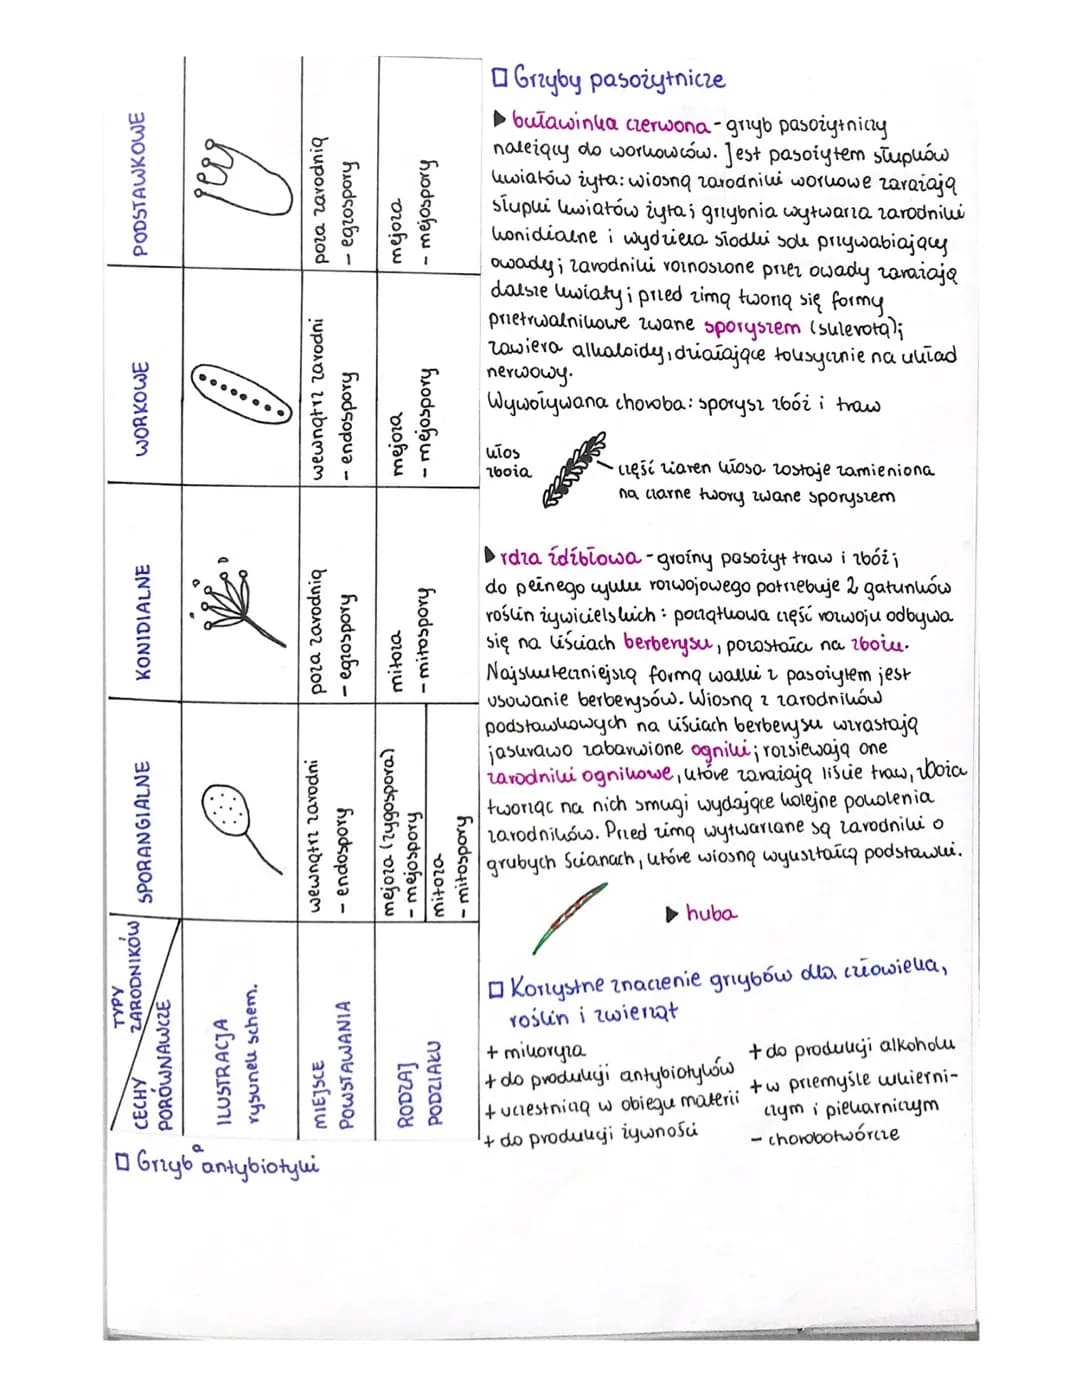 TYPY ZARODNIKÓW
CECHY PORÓWNAWCZE
SPORANGIALNE
KONIDIALNE
WORKOWE
PODSTAWKOWE
ILUSTRACJA
rysunek schem.
MIEJSCE
POWSTAWANIA
wewnątrz zarodni
- endospory
poza zarodnią
- egzospory
wewnątrz zarodni
- endospory
poza zarodnią
- egzospory
RODZAJ
PODZIAŁU
mejoza (zygospora)
- mejospory
mitoza
- mitospory
mitoza
- mitospory
mejoza
- mejospory
mejoza
- mejospory
Grzyb a antybiotyki
Grzyby pasożytnicze
buławinka czerwona - grzyb pasożytniczy
należący do workowców. Jest pasożytem słupków
kwiatów żyta: wiosną zarodniki workowe zarażają
słupki kwiatów żyta; grzybnia wytwarza zarodniki
konidialne i wydziela słodki sok przywabiający
owady; zarodniki roznoszone przez owady zarażają
dalsze kwiaty; przed zimą tworzą się formy
przetrwalnikowe zwane sporyszem (sklerotą);
zawiera alkaloidy, działające toksycznie na układ
nerwowy.
Wywoływana choroba: sporysz zbóż i traw
kłos
zboża
część ziaren kłosa zostaje zamieniona
na czarne twory zwane sporyszem
rdza źdźbłowa - groźny pasożyt traw i zbóż;
do pełnego cyklu rozwojowego potrzebuje 2 gatunków
roślin żywicielskich: początkowa część rozwoju odbywa
się na liściach berberysu, pozostała na zbożu.
Najskuteczniejszą formą walki z pasożytem jest
usowanie berberysów. Wiosną z zarodników
podstawkowych na liściach berberysu wzrastają
jaskrawo zabarwione ogniki; rozsiewają one
zarodniki ognikowe, które zarażają liście traw, zboża
tworząc na nich smugi wydające kolejne pokolenia
zarodników. Przed zimą wytwarzane są zarodniki o
grubych ścianach, które wiosną wykształcą podstawki.
huba
Korzystne znaczenie grzybów dla człowieka,
roślin i zwierząt
+ mikoryza
+ do produkcji antybiotyków
+ uczestniczą w obiegu materii
+ do produkcji żywności
+ do produkcji alkoholu
+ w przemyśle cukierni-
czym i piekarniczym
- chorobotwórcze